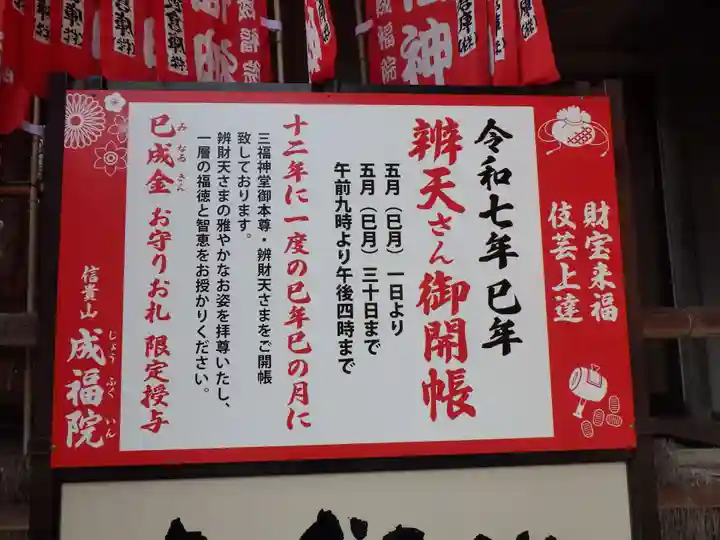 財宝来福
伎芸上達
令和七年巳年
辨天さん御開帳
五月（巳月）一日より
五月（巳月）三十日まで
午前九時より午後四時まで
十二年に一度の巳年巳の月に
三福神堂御本尊・辨財天さまをご開帳
致しております。
辨財天さまの雅やかなお姿を拝尊いたし、
一層の福徳と智恵をお授かりください。
巳成金 お守りお札 限定授与
み なる きん
信貴山 成福院
じょう ふく いん